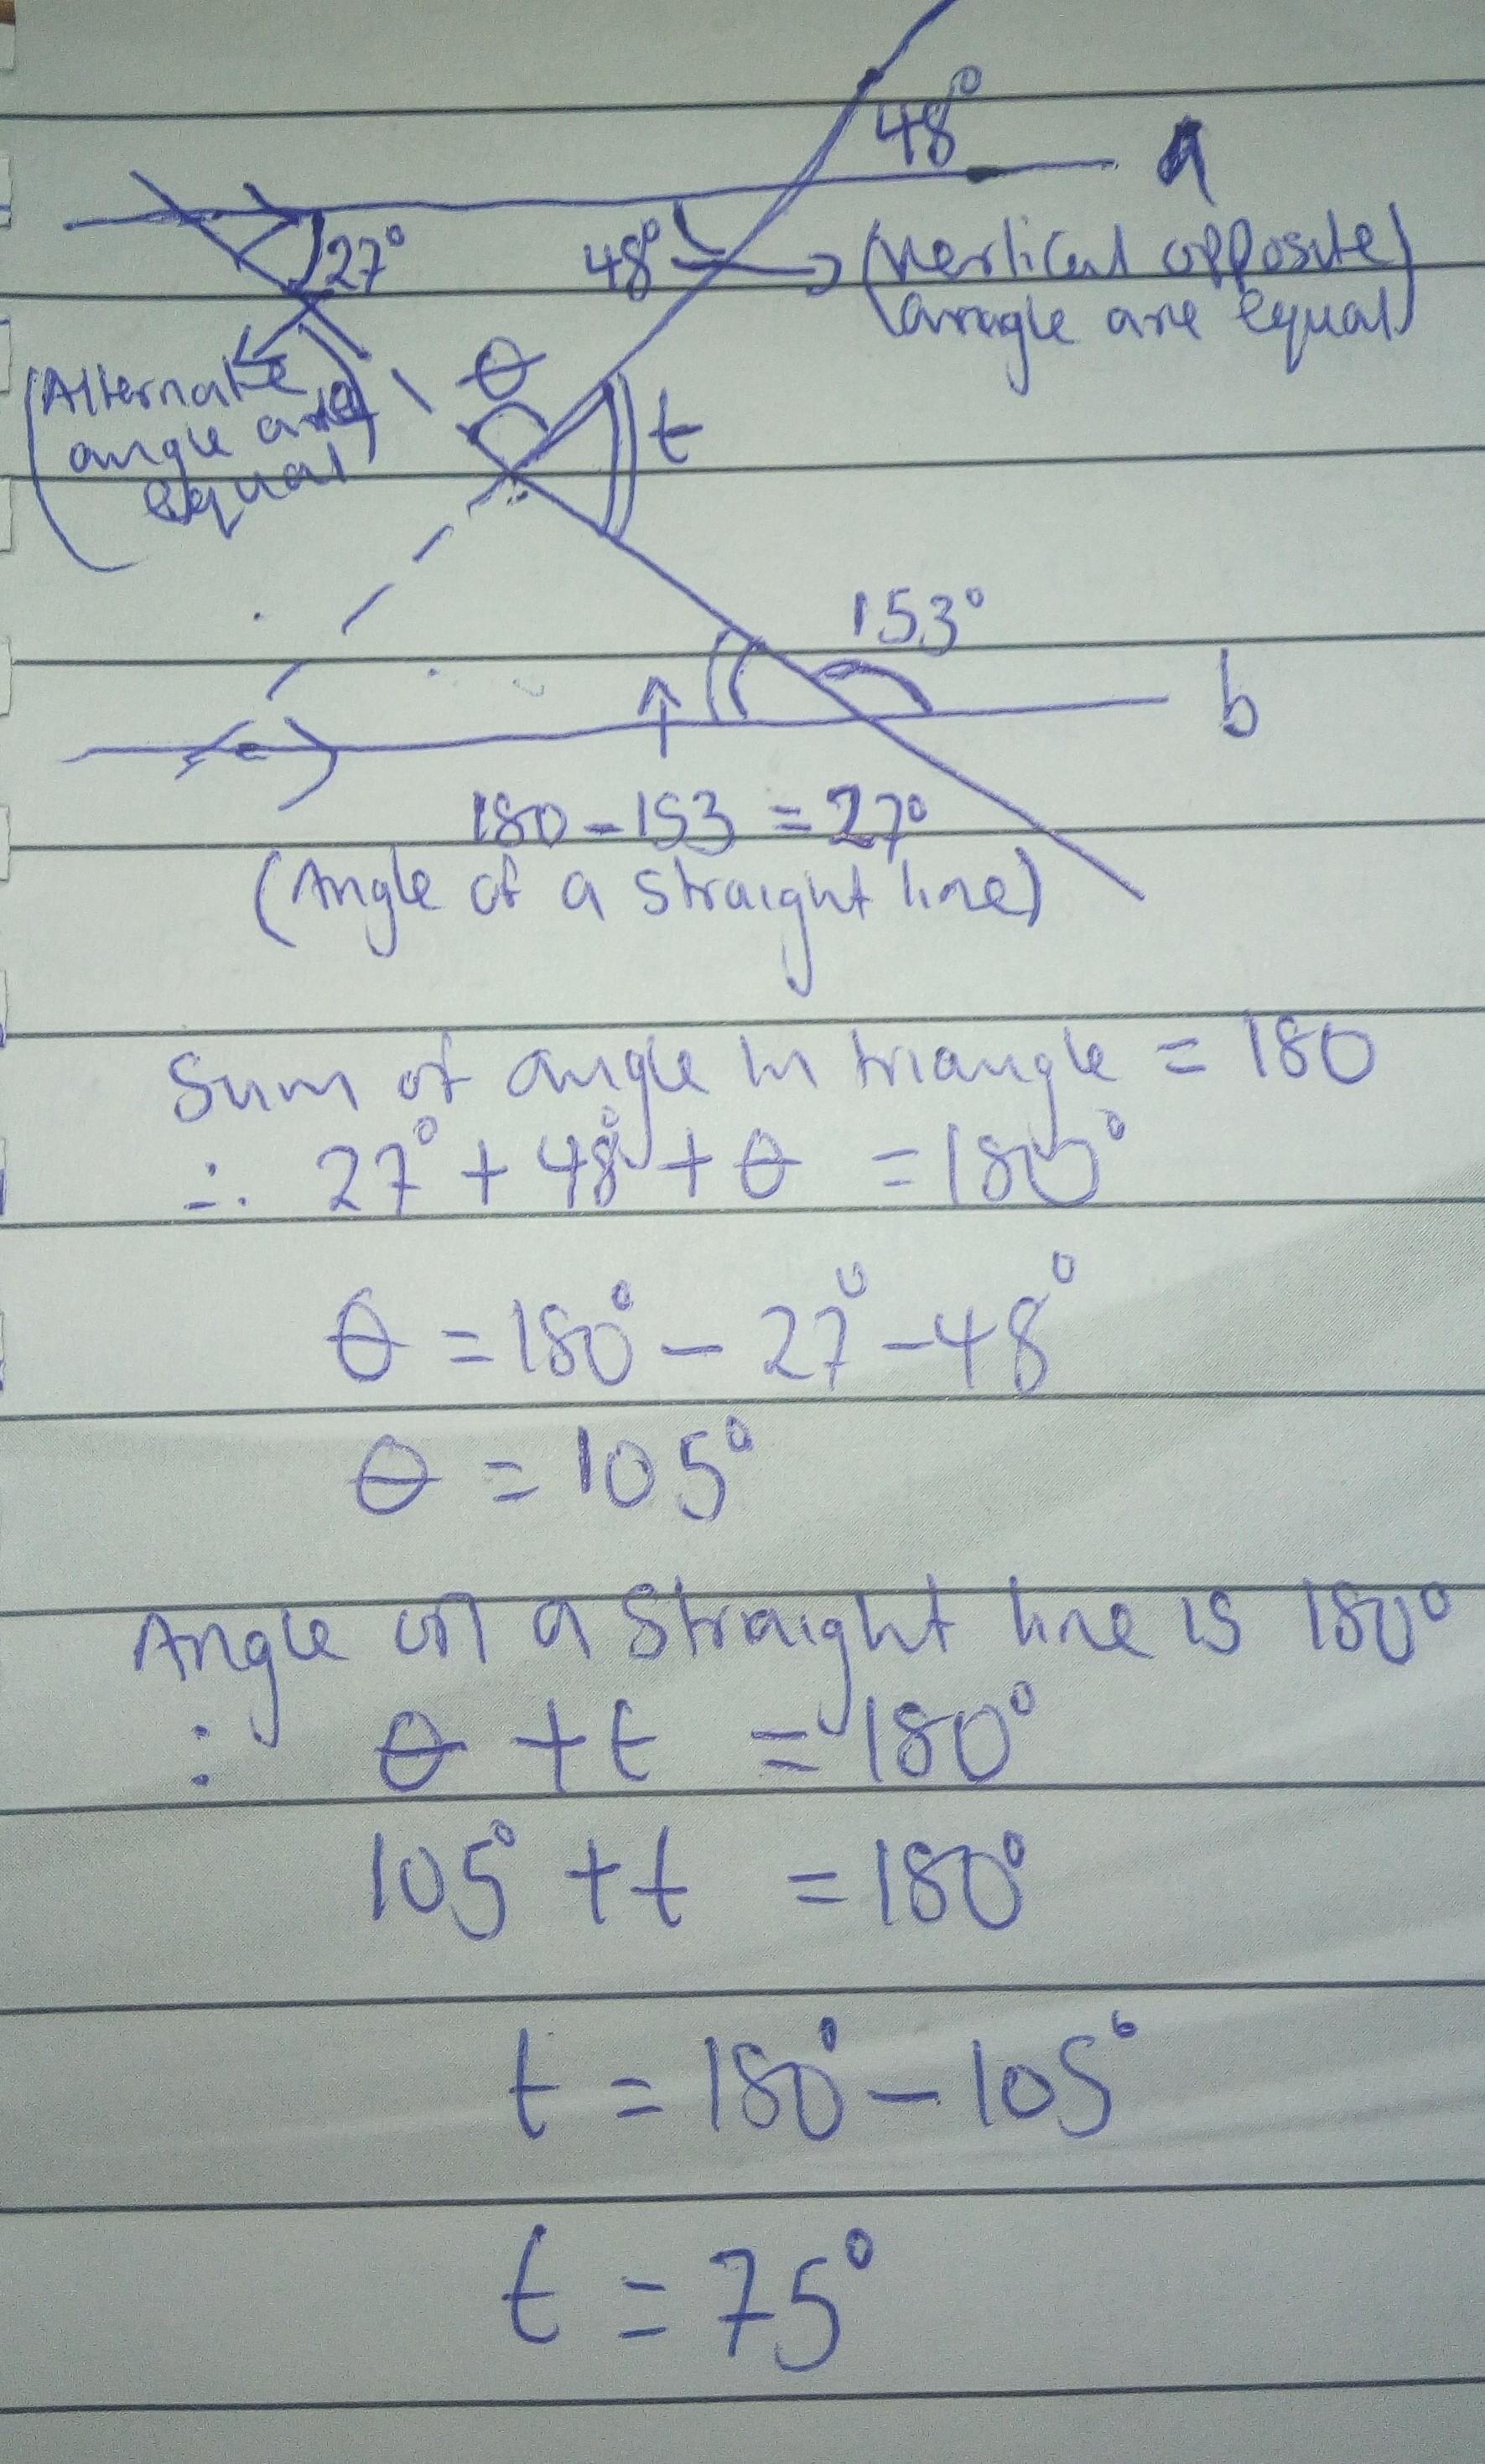 48°
a
27°
48°
(Vertical opposite
angle are equal)
(Alternate
angle are
equal)
θ
t
153°
b
180-153=27°
(Angle of a straight line)
Sum of angle in triangle = 180
∴ 27° + 48° + θ = 180°
θ = 180° - 27° - 48°
θ = 105°
Angle on a straight line is 180°
: θ + t = 180°
105° + t = 180°
t = 180° - 105°
t = 75°